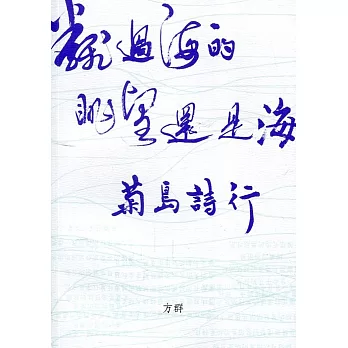 翻過海的
眺望還是海
菊島詩行
方群